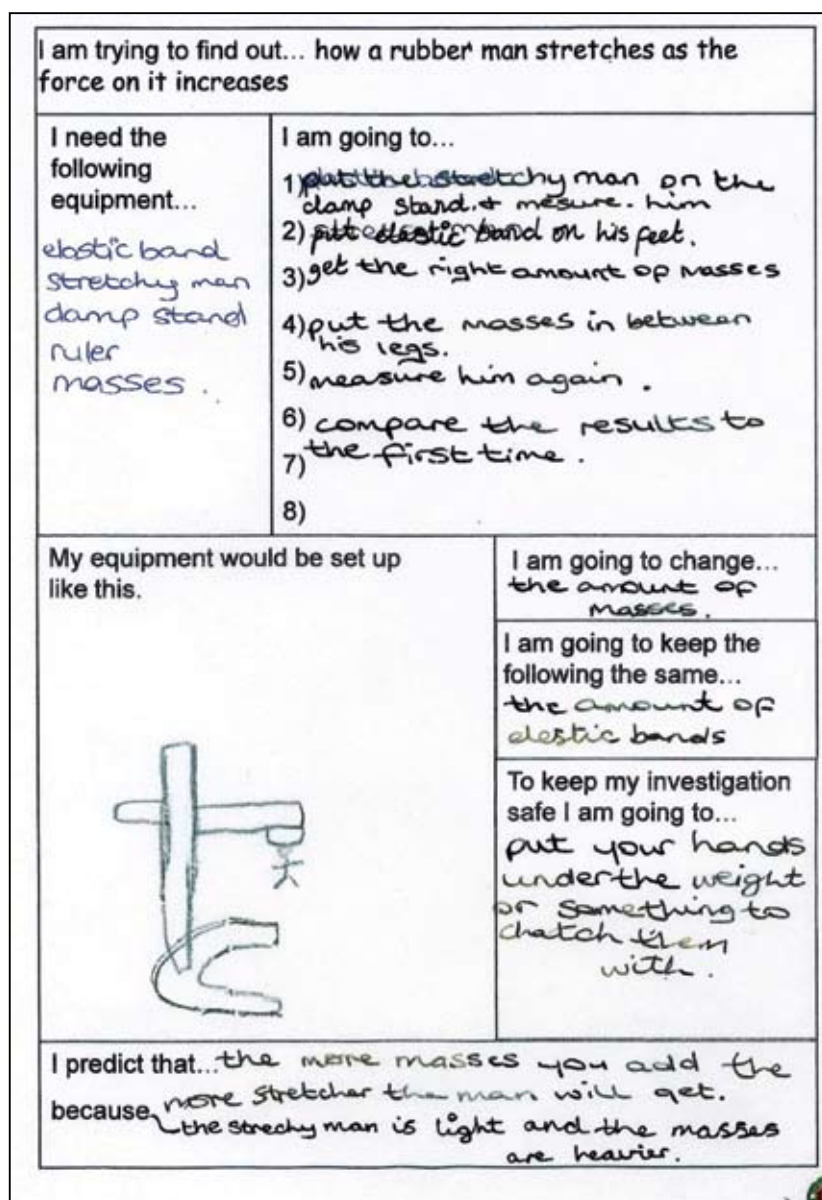 I am trying to find out... how a rubber man stretches as the
force on it increases
I need the
following
equipment...
elastic band
stretchy man
clamp stand
ruler
masses .
I am going to...
1) put the stretchy man on the
clamp stand. & mesure. him
2) putt elastic band on his feet.
3) get the right amount of masses
4) put the masses in between
his legs.
5) measure him again .
6) compare the results to
7) the first time .
8)
My equipment would be set up
like this.
I am going to change...
the amount of
masses.
I am going to keep the
following the same...
the amount of
elestic bands
To keep my investigation
safe I am going to...
put your hands
under the weight
or something to
chatch them
with .
I predict that... the more masses you add the
more stretcher the man will get.
because the strechy man is light and the masses
are heavier.